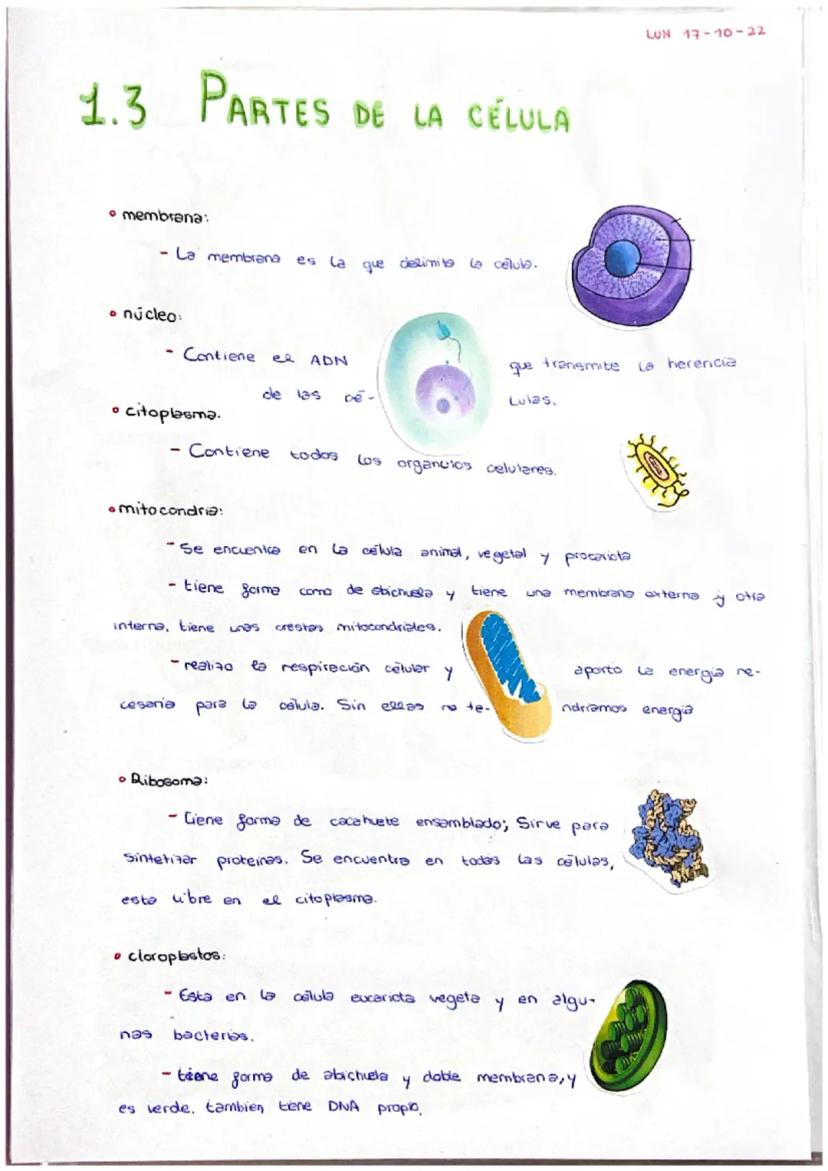 LUN 17-10-22
1.3 PARTES DE LA CÉLULA
• membrana:
- La membrana es la que delimita la célula.
• núcleo:
- Contiene el ADN que transmite la herencia
de las cé- lulas.
• citoplasma.
- Contiene todos los organulos celulares.
• mitocondria:
- Se encuentra en la célula animal, vegetal y procariota
- tiene forma como de abichuela y tiene una membrana externa y otra
interna. tiene unas crestas mitocondriales.
- realiza la respiración célular y aporta la energía ne-
cesaria para la célula. Sin ellas no te- ndriamos energia
• Ribosoma:
- tiene forma de cacahuete ensamblado; Sirve para
sintetizar proteinas. Se encuentra en todas las células,
esta libre en el citoplasma.
• cloroplastos:
- Esta en la célula eucariota vegeta y en algu-
nas bacterias.
- tiene forma de abichuela y doble membrana, y
es verde. tambien tiene DNA propio.